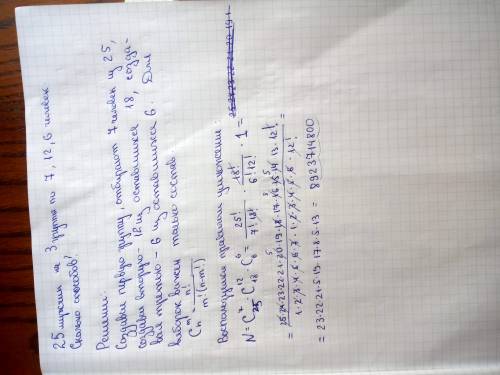 25 мужчин на 3 группы по 7, 12, 6 человек
Сколько способов?
Решение:
Создавая первую группу, отбирают 7 человек из 25,
создавая вторую - 12 из оставшихся 18, созда-
вая третью - 6 из оставшихся 6. Для
выборок важен только состав.
C_n^m = n! / m!(n-m)!
Воспользуемся правилом умножения:
N = C_25^7 · C_18^12 · C_6^6 = 25! / 7!·18! · 18! / 6!·12! · 1 =
= 25·24·23·22·21·20·19·18·17·16·15·14·13·12! / 1·2·3·4·5·6·7·1·2·3·4·5·6·12! =
= 23·22·21·5·19·17·8·5·13 = 8923714800